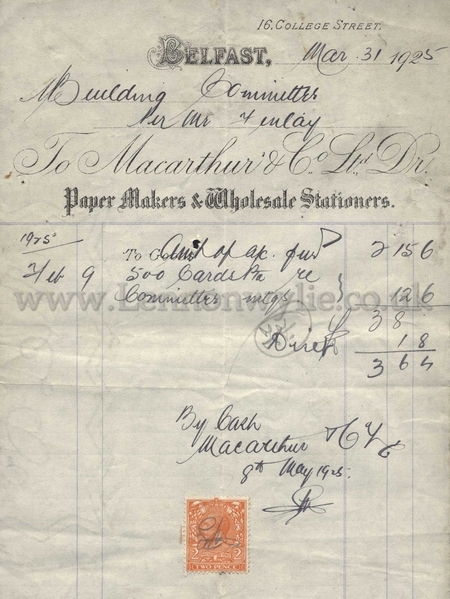 16, COLLEGE STREET.
BELFAST, Mar. 31 1925
Building Committee
Per Mr Finlay
To Macarthur & Co. Ltd. Dr.
Paper Makers & Wholesale Stationers.
1925
To Goods Amt of a/c furd 2 15 6
Feb 9 500 Cards Pta re
Committee mtgs 12 6
3 8
Disct 1 8
3 6 4
www.Lennonwylie.co.uk
By Cash
Macarthur & Co
8th May 1925.
2 2
TWO PENCE